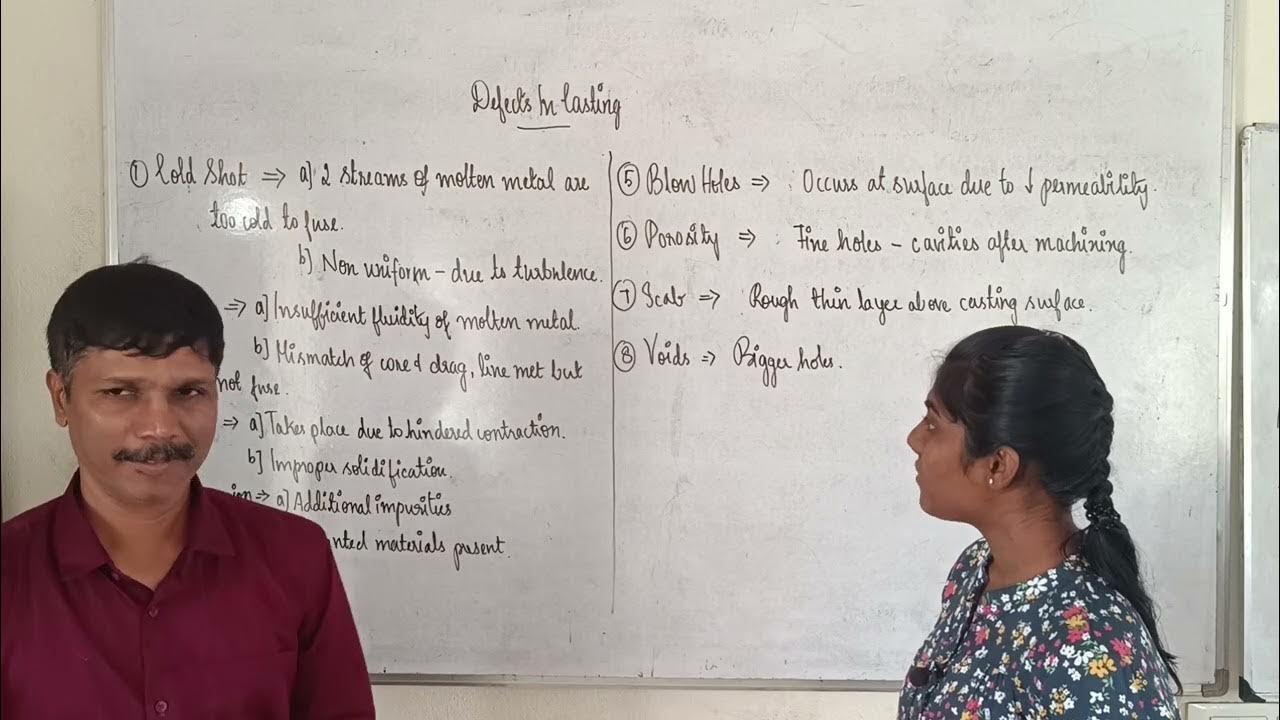 Defects In Casting
① Cold Shot ⇒ a] 2 streams of molten metal are
too cold to fuse.
b] Non uniform - due to turbulence.
⇒ a] Insufficient fluidity of molten metal.
b] Mismatch of core & drag, line met but
not fuse.
⇒ a] Takes place due to hindered contraction.
b] Improper solidification.
ion ⇒ a] Additional impurities
nted materials present.
⑤ Blow Holes ⇒ : Occurs at surface due to ↓ permeability.
⑥ Porosity ⇒ : Fine holes - cavities after machining.
⑦ Scab ⇒ : Rough thin layer above casting surface.
⑧ Voids ⇒ Bigger holes.